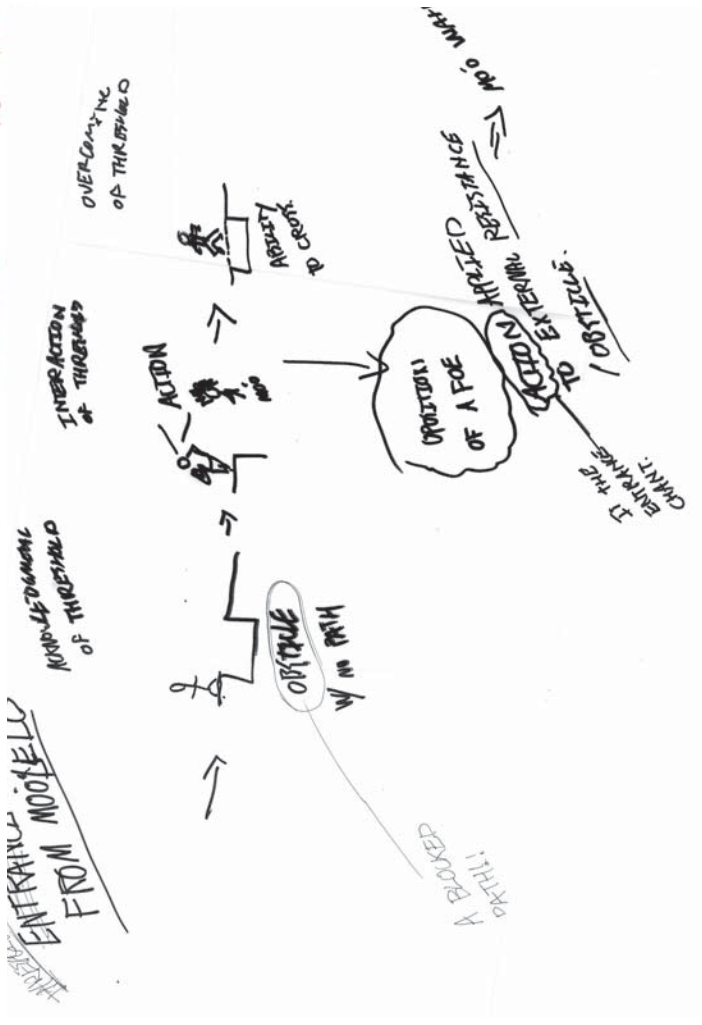 ENTRANCE
FROM
ACKNOWLEDGMENT
OF THRESHOLD
INTERACTION
OF THRESHOLD
OVERCOMING
OF THRESHOLD
ACTION
ABILITY
TO CROSS.
OBSTICLE
W/ NO PATH
A BLOCKED
PATH!!
OPOSITION:
OF A FOE
ACTION APPLIED
TO EXTERNAL RESISTANCE
/ OBSTICLE.
IS THE
ENTRANCE
CHANT.